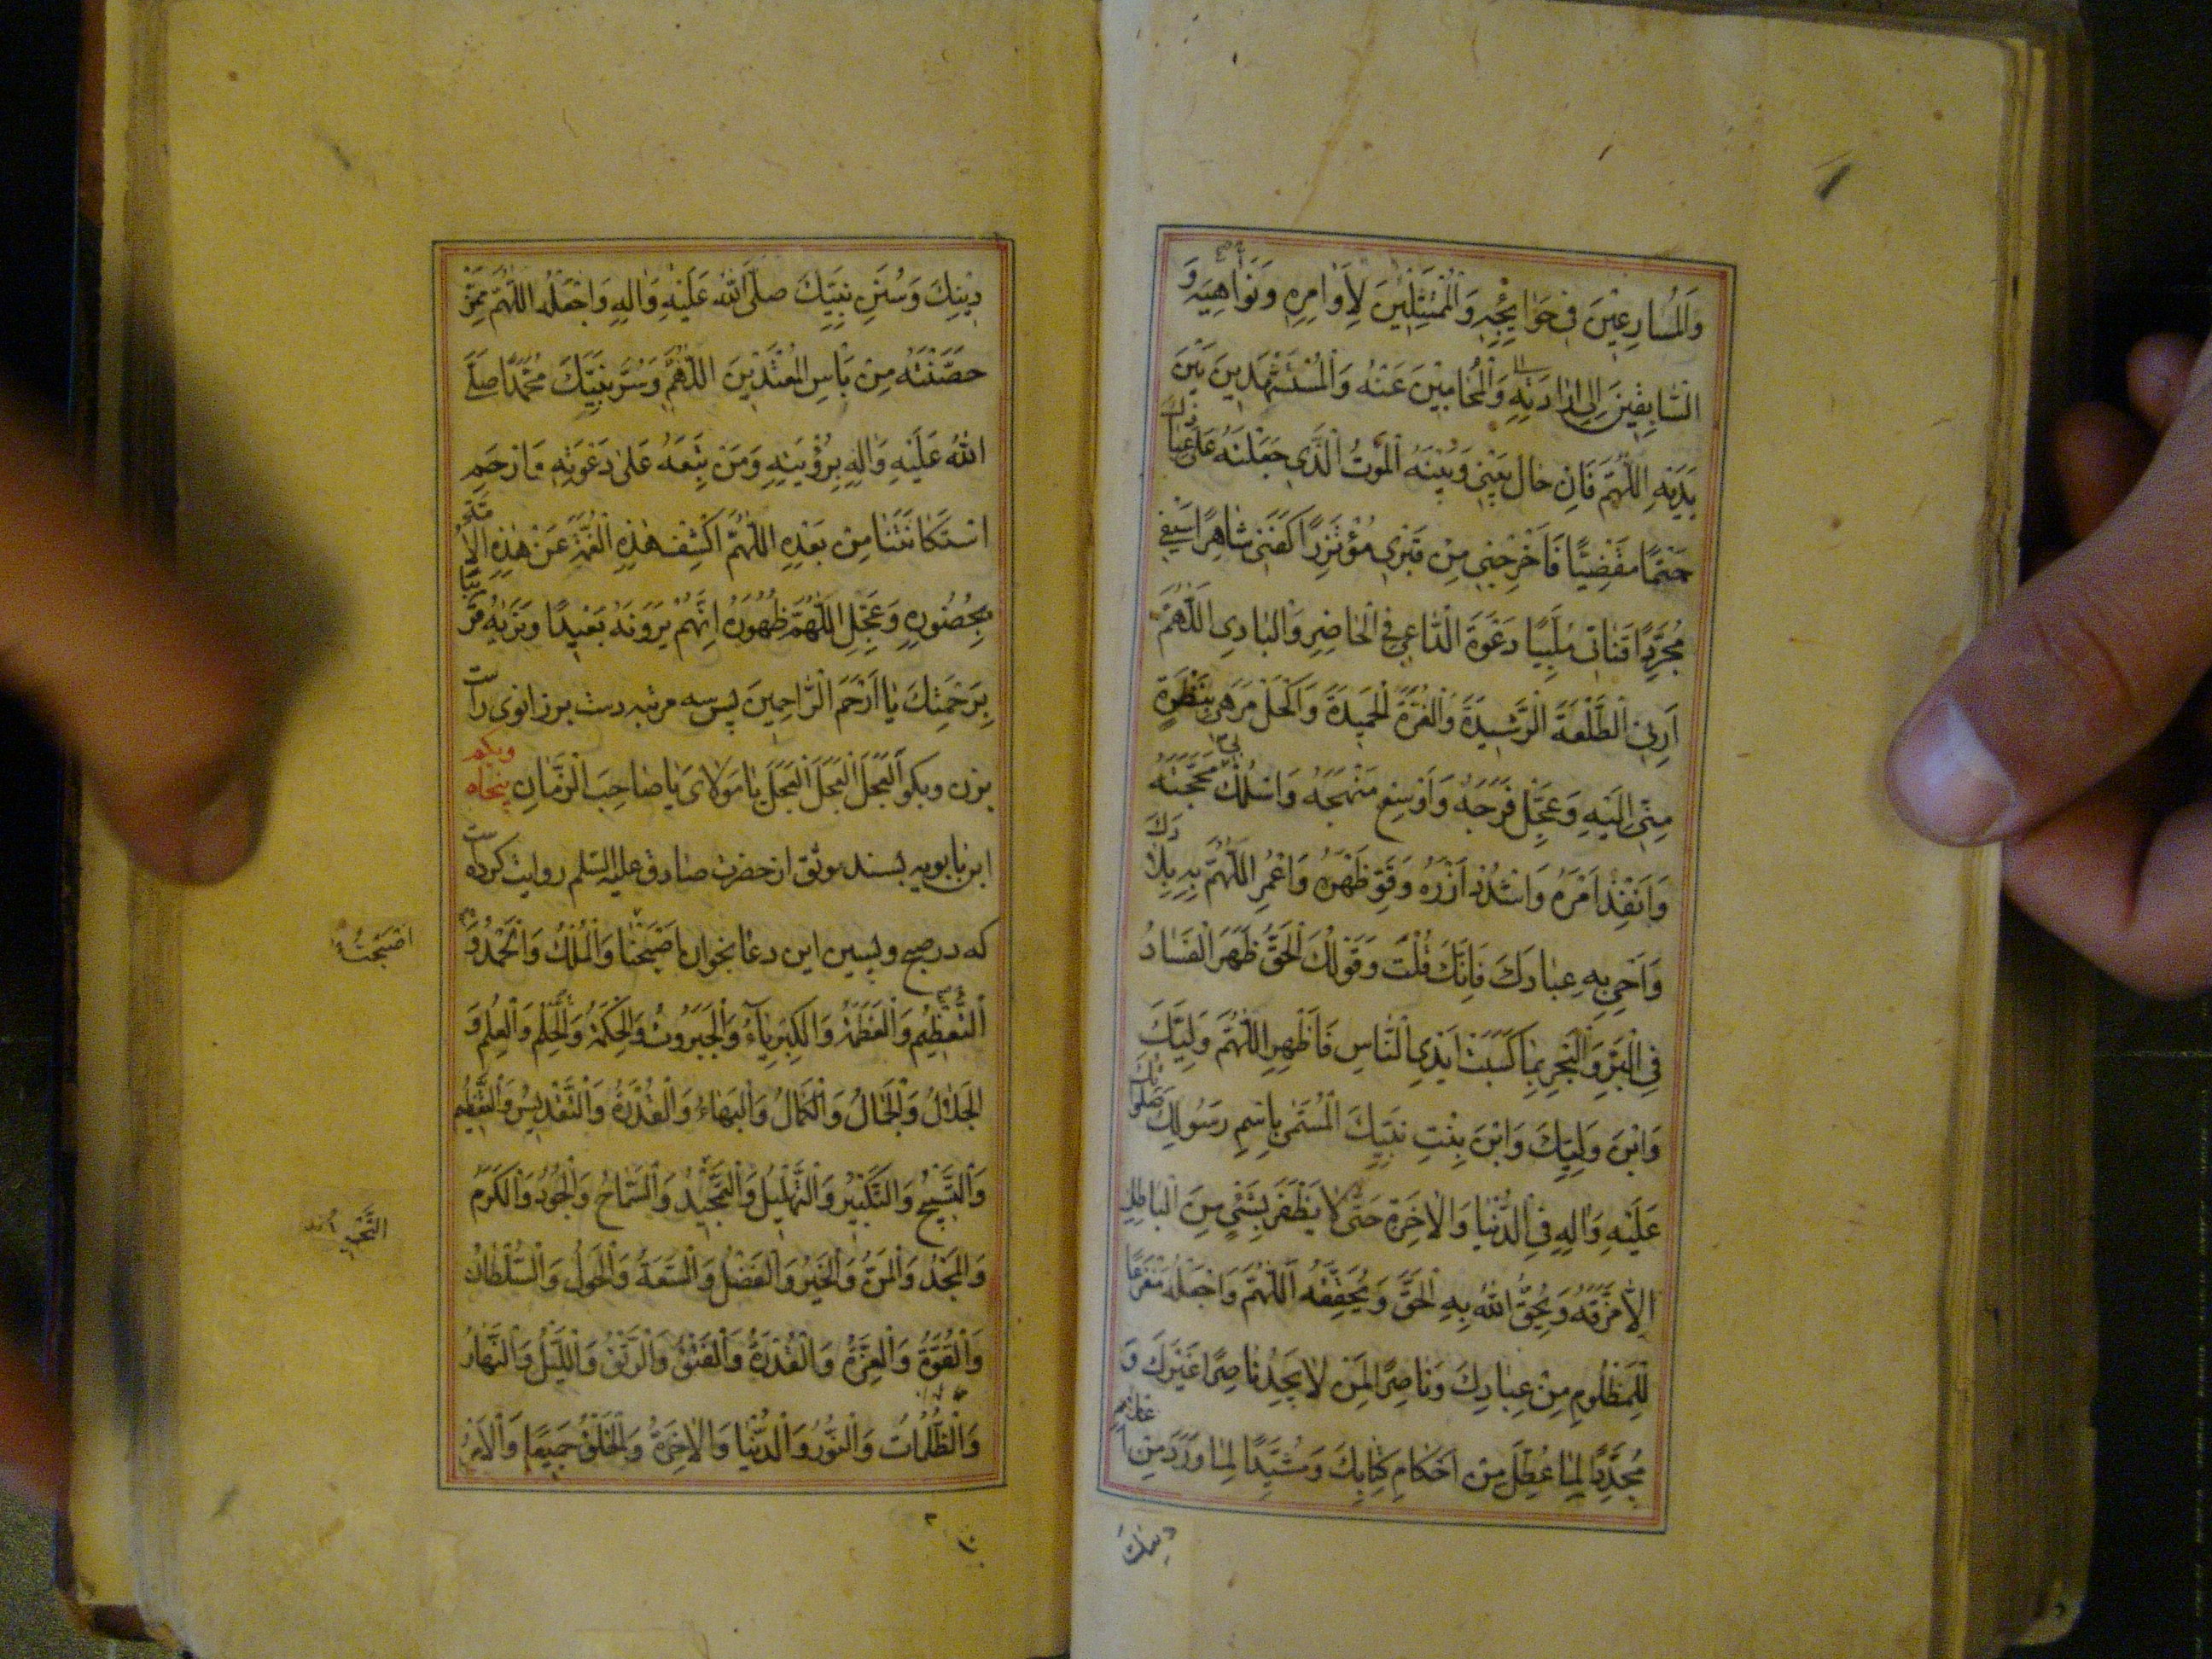 وَالْمُسَارِعِينَ فِي حَوَائِجِهِ وَالْمُمْتَثِلِينَ لِأَوَامِرِهِ وَنَوَاهِيهِ وَ
السَّابِقِينَ إِلَى إِرَادَتِهِ وَالْمُحَامِينَ عَنْهُ وَالْمُسْتَشْهَدِينَ بَيْنَ
يَدَيْهِ اللَّهُمَّ فَإِنْ حَالَ بَيْنِي وَبَيْنَهُ الْمَوْتُ الَّذِي جَعَلْتَهُ عَلَى عِبَادِكَ
حَتْمًا مَقْضِيًّا فَأَخْرِجْنِي مِنْ قَبْرِي مُؤْتَزِرًا كَفَنِي شَاهِرًا سَيْفِي
مُجَرِّدًا قَنَاتِي مُلَبِّيًا دَعْوَةَ الدَّاعِي فِي الْحَاضِرِ وَالْبَادِي اللَّهُمَّ
أَرِنِي الطَّلْعَةَ الرَّشِيدَةَ وَالْغُرَّةَ الْحَمِيدَةَ وَاكْحَلْ مَرَهِي بِنَظْرَةٍ
مِنِّي إِلَيْهِ وَعَجِّلْ فَرَجَهُ وَأَوْسِعْ مَنْهَجَهُ وَاسْلُكْ بِي مَحَجَّتَهُ
وَأَنْفِذْ أَمْرَهُ وَاشْدُدْ أَزْرَهُ وَقَوِّ ظَهْرَهُ وَاعْمُرِ اللَّهُمَّ بِهِ بِلَادَكَ
وَأَحْيِ بِهِ عِبَادَكَ فَإِنَّكَ قُلْتَ وَقَوْلُكَ الْحَقُّ ظَهَرَ الْفَسَادُ
فِي الْبَرِّ وَالْبَحْرِ بِمَا كَسَبَتْ أَيْدِي النَّاسِ فَأَظْهِرِ اللَّهُمَّ وَلِيَّكَ
وَابْنَ وَلِيِّكَ وَابْنَ بِنْتِ نَبِيِّكَ الْمُسَمَّى بِاسْمِ رَسُولِكَ صَلَوَاتُكَ
عَلَيْهِ وَآلِهِ فِي الدُّنْيَا وَالْآخِرَةِ حَتَّى لَا يَظْفَرَ بِشَيْءٍ مِنَ الْبَاطِلِ
إِلَّا مَزَّقَهُ وَيُحِقُّ اللَّهُ بِهِ الْحَقَّ وَيُحَقِّقُهُ اللَّهُمَّ وَاجْعَلْهُ مَفْزَعًا
لِلْمَظْلُومِ مِنْ عِبَادِكَ وَنَاصِرًا لِمَنْ لَا يَجِدُ نَاصِرًا غَيْرَكَ وَ
مُجَدِّدًا لِمَا عُطِّلَ مِنْ أَحْكَامِ كِتَابِكَ وَمُشَيِّدًا لِمَا وَرَدَ مِنْ أَعْلَامِ
دِينِكَ
دِينِكَ وَسُنَنِ نَبِيِّكَ صَلَّى اللَّهُ عَلَيْهِ وَآلِهِ وَاجْعَلْهُ اللَّهُمَّ مِمَّنْ
حَصَّنْتَهُ مِنْ بَأْسِ الْمُعْتَدِينَ اللَّهُمَّ وَسُرَّ نَبِيَّكَ مُحَمَّدًا صَلَّى
اللَّهُ عَلَيْهِ وَآلِهِ بِرُؤْيَتِهِ وَمَنْ تَبِعَهُ عَلَى دَعْوَتِهِ وَارْحَمِ
اسْتِكَانَتَنَا مِنْ بَعْدِهِ اللَّهُمَّ اكْشِفْ هَذِهِ الْغُمَّةَ عَنْ هَذِهِ الْأُمَّةِ
بِحُضُورِهِ وَعَجِّلِ اللَّهُمَّ ظُهُورَهُ إِنَّهُمْ يَرَوْنَهُ بَعِيدًا وَنَرَيهُ قَرِيبًا
بِرَحْمَتِكَ يَا أَرْحَمَ الرَّاحِمِينَ پس سه مرتبه دست بر زانوی راست
بزن و بگو الْعَجَلَ الْعَجَلَ الْعَجَلَ يَا مَوْلَايَ يَا صَاحِبَ الزَّمَانِ پنجاه ویکم
ابن بابویه بسند موثق از حضرت صادق علیه السلم روایت کرده است
که در صبح و پسین این دعا بخوان أَصْبَحْنَا وَالْمُلْكُ وَالْحَمْدُ وَ
أَصْبَحْتُ
التَّعْظِيمُ وَالْعَظَمَةُ وَالْكِبْرِيَاءُ وَالْجَبَرُوتُ وَالْحِكْمَةُ وَالْحِلْمُ وَالْعِلْمُ وَ
الْجَلَالُ وَالْجَمَالُ وَالْكَمَالُ وَالْبَهَاءُ وَالْقُدْرَةُ وَالتَّقْدِيسُ وَالتَّعْظِيمُ
وَالتَّسْبِيحُ وَالتَّكْبِيرُ وَالتَّهْلِيلُ وَالتَّمْجِيدُ وَالسَّمَاحُ وَالْجُودُ وَالْكَرَمُ
وَالْمَجْدُ وَالْمَنُّ وَالْخَيْرُ وَالْفَضْلُ وَالسَّعَةُ وَالْحَوْلُ وَالسُّلْطَانُ
وَالْقُوَّةُ وَالْعِزَّةُ وَالْقُدْرَةُ وَالْفَتْقُ وَالرَّتْقُ وَاللَّيْلُ وَالنَّهَارُ
وَالظُّلُمَاتُ وَالنُّورُ وَالدُّنْيَا وَالْآخِرَةُ وَالْخَلْقُ جَمِيعًا وَالْأَمْرُ